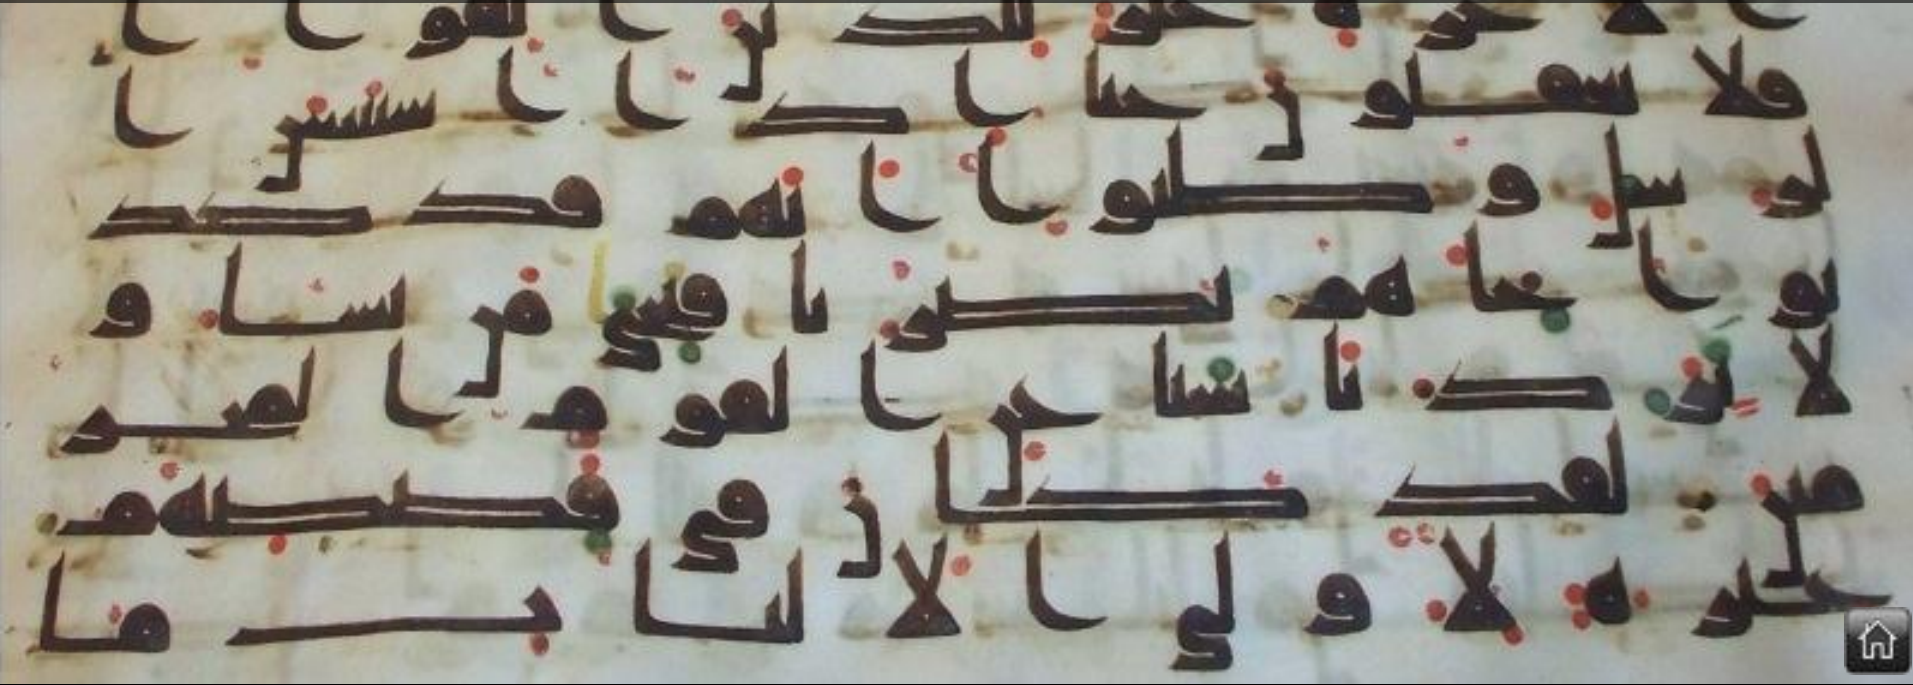 الاخره خير للذين اتقوا ا
فلا تعقلون حتا اذا استيس ا
لرسل وظنوا انهم قد كذ
بوا جاهم نصرنا فنجي من نشا و
لا يرد باسنا عن القوم المجر
مين لقد كان في قصصهم
عبره لاولي الالباب ما